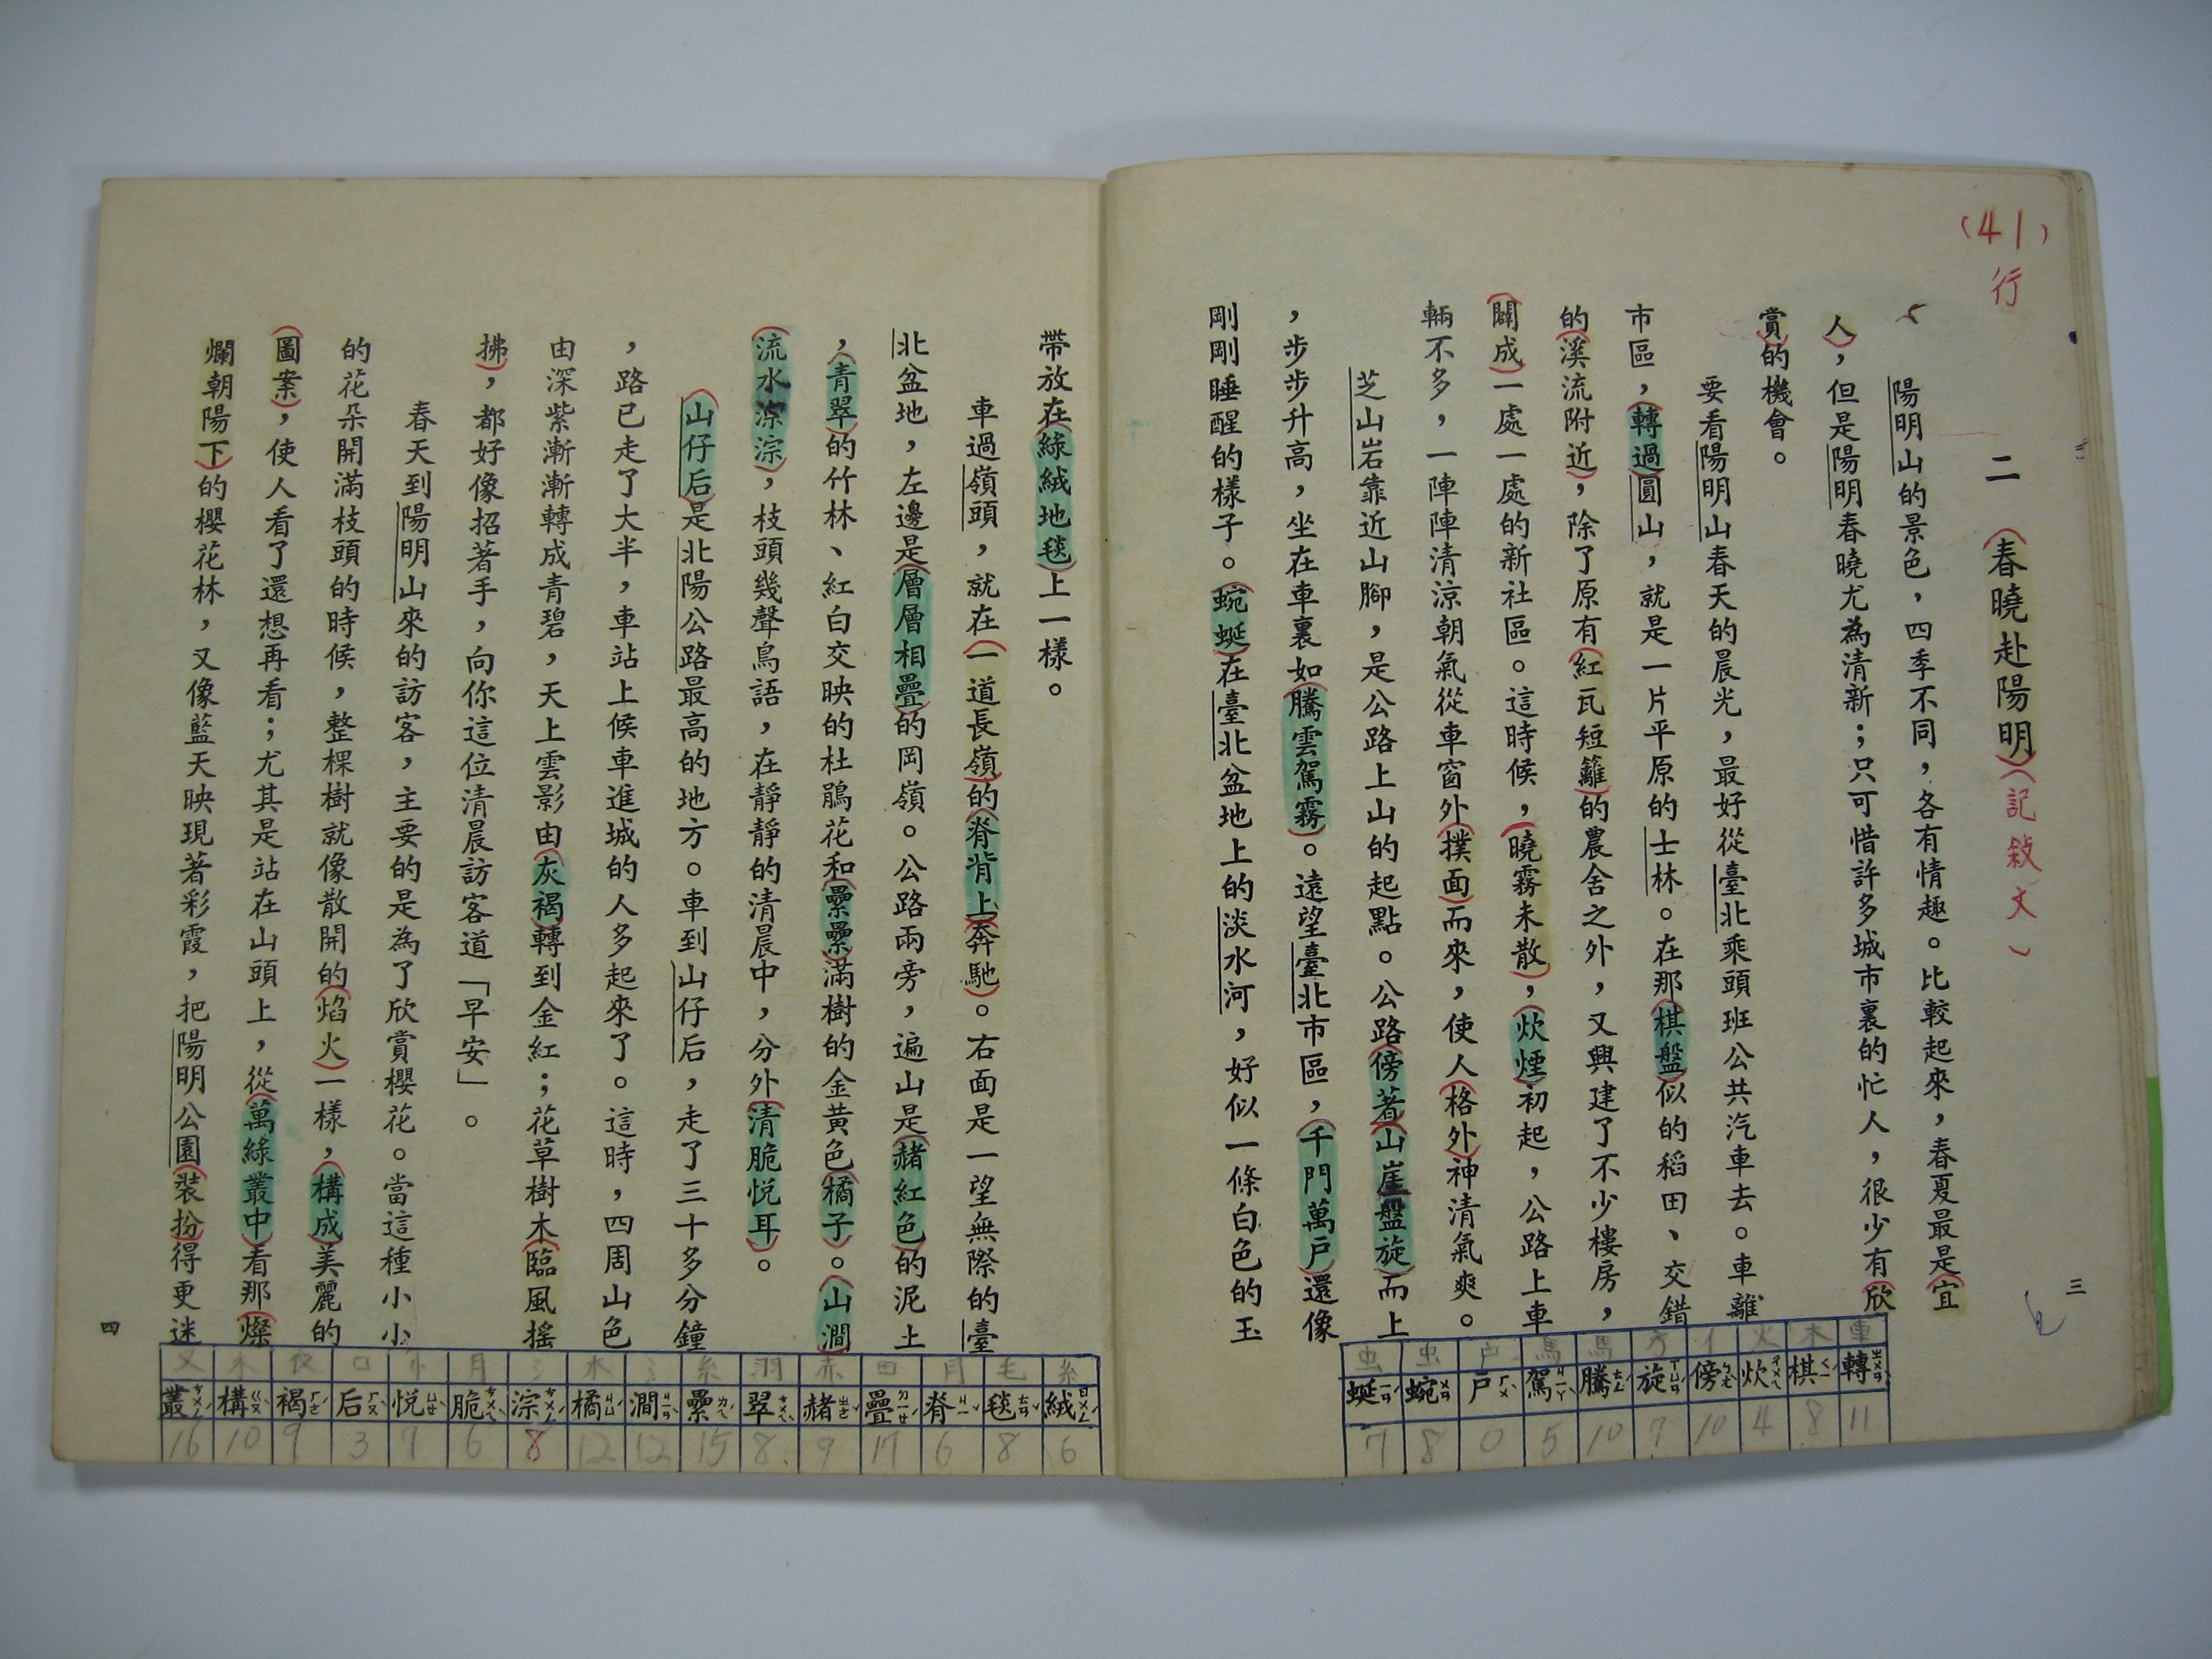 (41)
行
二　(春曉赴陽明)(記敘文)
陽明山的景色，四季不同，各有情趣。比較起來，春夏最是(宜
人)，但是陽明春曉尤為清新；只可惜許多城市裏的忙人，很少有(欣
賞)的機會。
要看陽明山春天的晨光，最好從臺北乘頭班公共汽車去。車離
市區，(轉過)圓山，就是一片平原的士林。在那(棋盤)似的稻田、交錯
的(溪流附近)，除了原有(紅瓦短籬)的農舍之外，又興建了不少樓房，
(闢成)一處一處的新社區。這時候，(曉霧未散)，(炊煙)初起，公路上車
輛不多，一陣陣清涼朝氣從車窗外(撲面)而來，使人(格外)神清氣爽。
芝山岩靠近山腳，是公路上山的起點。公路(傍著)(山崖盤旋)而上
，步步升高，坐在車裏如(騰雲駕霧)。遠望臺北市區，(千門萬戶)還像
剛剛睡醒的樣子。(蜿蜒)在臺北盆地上的淡水河，好似一條白色的玉
三
車 木 火 亻 方 馬 馬 戶 虫 虫
轉ㄓㄨㄢˇ 棋ㄑㄧˊ 炊ㄔㄨㄟ 傍ㄅㄤˋ 旋ㄒㄩㄢˊ 騰ㄊㄥˊ 駕ㄐㄧㄚˋ 戶ㄏㄨˋ 蜿ㄨㄢ 蜒ㄧㄢˊ
11 8 4 10 7 10 5 0 8 7
帶放在(綠絨地毯)上一樣。
車過嶺頭，就在(一道長嶺)的(脊背上)(奔馳)。右面是一望無際的臺
北盆地，左邊是(層層相疊)的岡嶺。公路兩旁，遍山是(赭紅色)的泥土
，(青翠)的竹林、紅白交映的杜鵑花和(纍纍)滿樹的金黃色(橘子)。(山澗
(流水淙淙)，枝頭幾聲鳥語，在靜靜的清晨中，分外(清脆悅耳)。
(山仔后)是北陽公路最高的地方。車到山仔后，走了三十多分鐘
，路已走了大半，車站上候車進城的人多起來了。這時，四周山色
由深紫漸漸轉成青碧，天上雲影由(灰褐)轉到金紅；花草樹木(臨風搖
拂)，都好像招著手，向你這位清晨訪客道「早安」。
春天到陽明山來的訪客，主要的是為了欣賞櫻花。當這種小小
的花朵開滿枝頭的時候，整棵樹就像散開的(焰火)一樣，(構成)美麗的
(圖案)，使人看了還想再看；尤其是站在山頭上，從(萬綠叢中)看那(燦
爛朝陽下)的櫻花林，又像藍天映現著彩霞，把陽明公園(裝扮)得更迷
四
糸 毛 月 田 赤 羽 糸 氵 木 氵 月 忄 口 衣 木 又
絨ㄖㄨㄥˊ 毯ㄊㄢˇ 脊ㄐㄧˇ 疊ㄉㄧㄝˊ 赭ㄓㄜˇ 翠ㄘㄨㄟˋ 纍ㄌㄟˊ 澗ㄐㄧㄢˋ 橘ㄐㄩˊ 淙ㄘㄨㄥˊ 脆ㄘㄨㄟˋ 悅ㄩㄝˋ 后ㄏㄡˋ 褐ㄏㄜˊ 構ㄍㄡˋ 叢ㄘㄨㄥˊ
6 8 6 17 9 8 15 12 12 8 6 7 3 9 10 16